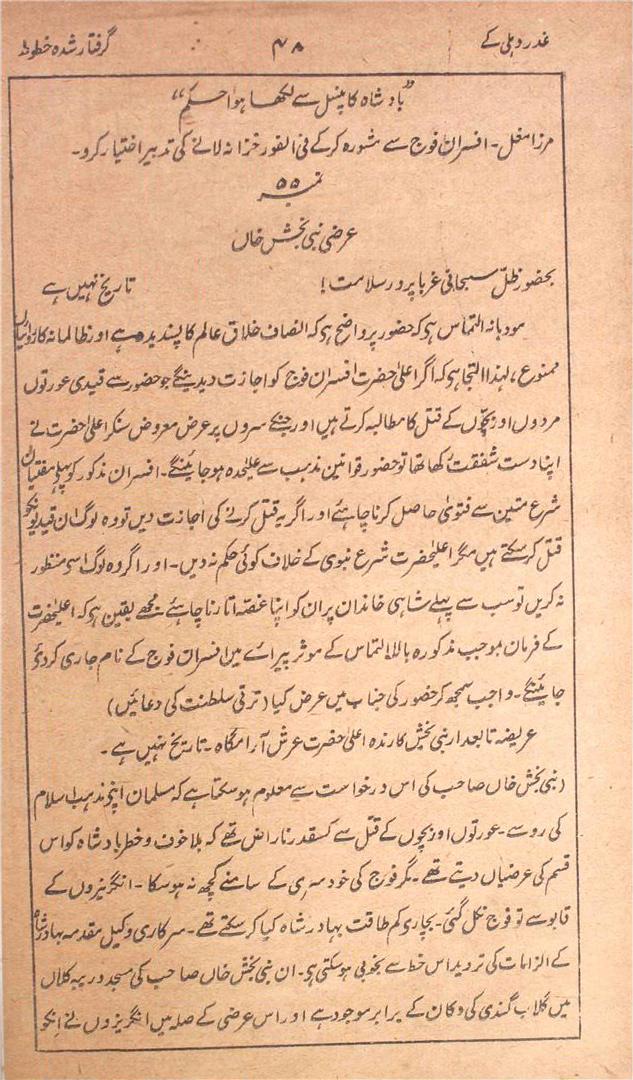 غدر دہلی کے ۴۸ گرفتار شدہ خطوط
"بادشاہ کا پنسل سے لکھا ہوا حکم"
مرزا مغل۔ افسران فوج سے مشورہ کرکے فی الفور خزانہ لانے کی تدبیر اختیار کرو۔
نمبر ۵۵
عرضی نبی بخش خاں
بحضور ظلّ سبحانی غربا پرور سلامت! تاریخ نہیں ہے
مودبانہ التماس ہی کہ حضور پر واضح ہی کہ انصاف خلاق عالم کا پسندیدہ ہے اور ظالمانہ کارروائیاں
ممنوع، لہٰذا التجا ہی کہ اگر اعلیٰ حضرت افسران فوج کو اجازت دیدینگے جو حضور سے قیدی عورتوں
مردوں اور بچّوں کے قتل کا مطالبہ کرتے ہیں اور جنکے سروں پر عرض معروض سنکر اعلیٰ حضرت نے
اپنا دست شفقت رکھا تھا تو حضور قوانین مذہب سے علیٰحدہ ہو جائینگے۔ افسران مذکور کو پہلے مفتیان
شرع متین سے فتویٰ حاصل کرنا چاہئے اور اگر یہ قتل کرنے کی اجازت دیں تو وہ لوگ ان قیدیونکو
قتل کر سکتے ہیں مگر اعلیٰحضرت شرع نبوی کے خلاف کوئی حکم نہ دیں۔ اور اگر وہ لوگ اسی منظور
نہ کریں تو سب سے پہلے شاہی خاندان پر ان کو اپنا غصّہ اتارنا چاہئے۔ مجھے یقین ہی کہ اعلیٰحضرت
کے فرمان بموجب مذکورہ بالا التماس کے موثر پیرائے میں افسران فوج کے نام جاری کردئے
جائینگے۔ واجب سمجھ کر حضور کی جناب میں عرض کیا (ترقی سلطنت کی دعائیں)
عریضہ تابعدار نبی بخش کارندہ اعلیٰ حضرت عرش آرامگاہ۔ تاریخ نہیں ہے۔
(نبی بخش خاں صاحب کی اس درخواست سے معلوم ہو سکتا ہے کہ مسلمان اپنے مذہب اسلام
کی رو سے۔ عورتوں اور بچوں کے قتل سے کسقدر ناراض تھے کہ بلا خوف و خطر بادشاہ کو اس
قسم کی عرضیاں دیتے تھے۔ مگر فوج کی خود سری کے سامنے کچھ نہ ہو سکا۔ انگریزوں کے
قابو سے تو فوج نکل گئی۔ بچاری کم طاقت بہادر شاہ کیا کر سکتے تھے۔ سرکاری وکیل مقدمہ بہادر شاہ
کے الزامات کی تردید اس خط سے بخوبی ہو سکتی ہی۔ ان نبی بخش خاں صاحب کی مسجد دریبہ کلاں
میں گلاب گندی کی دکان کے برابر موجود ہے اور اس عرضی کے صلہ میں انگریزوں نے انکو